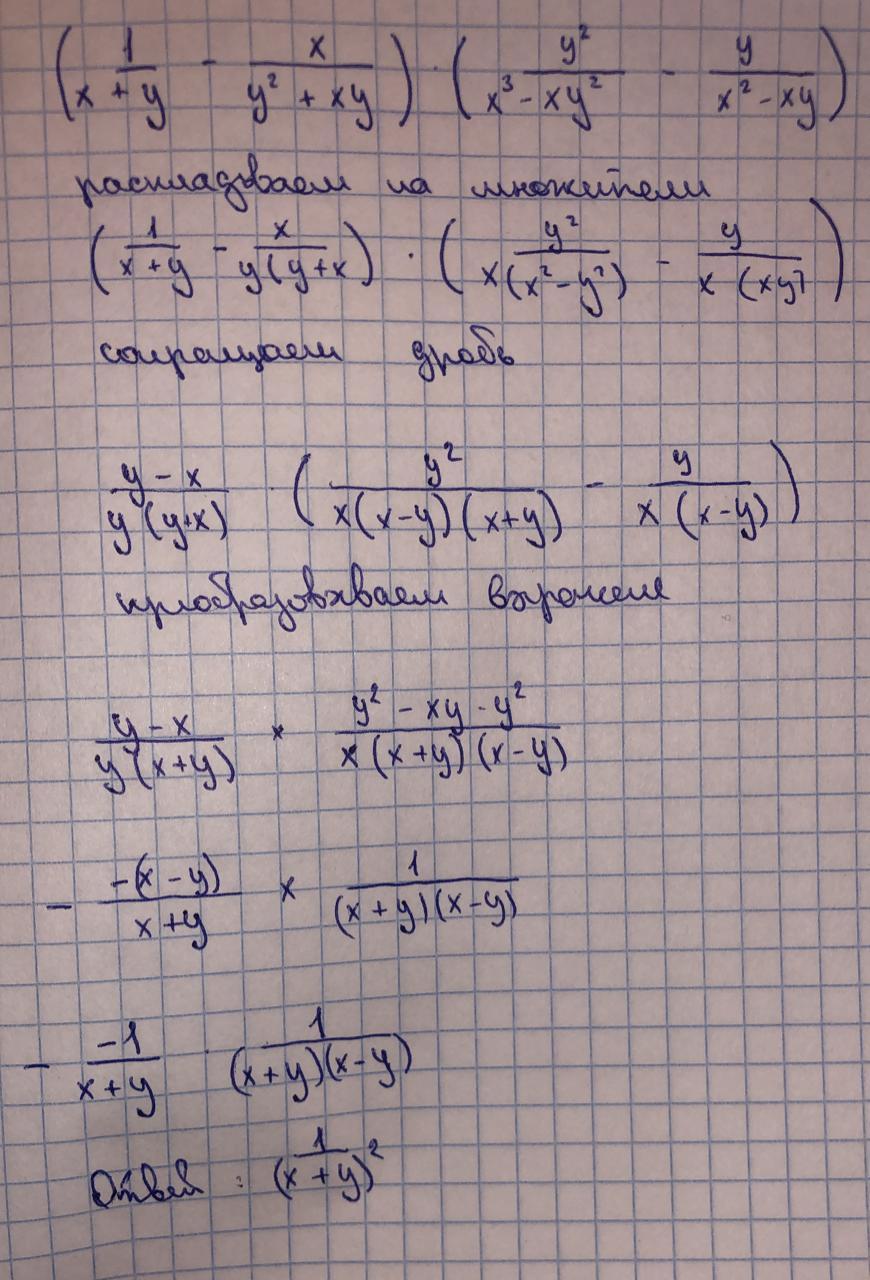 (1/(x + y) - x/(y² + xy)) · (y²/(x³ - xy²) - y/(x² - xy))
раскладываем на множители
(1/(x + y) - x/(y(y + x))) · (y²/(x(x² - y²)) - y/(x (xy)))
сокращаем дробь
(y - x)/(y (y + x)) · (y²/(x(x - y)(x + y)) - y/(x (x - y)))
преобразовываем выражение
(y - x)/(y (x + y)) × (y² - xy - y²)/(x (x + y)(x - y))
- -(x - y)/(x + y) × 1/((x + y)(x - y))
- -1/(x + y) · 1/((x + y)(x - y))
Ответ : 1/(x + y)²